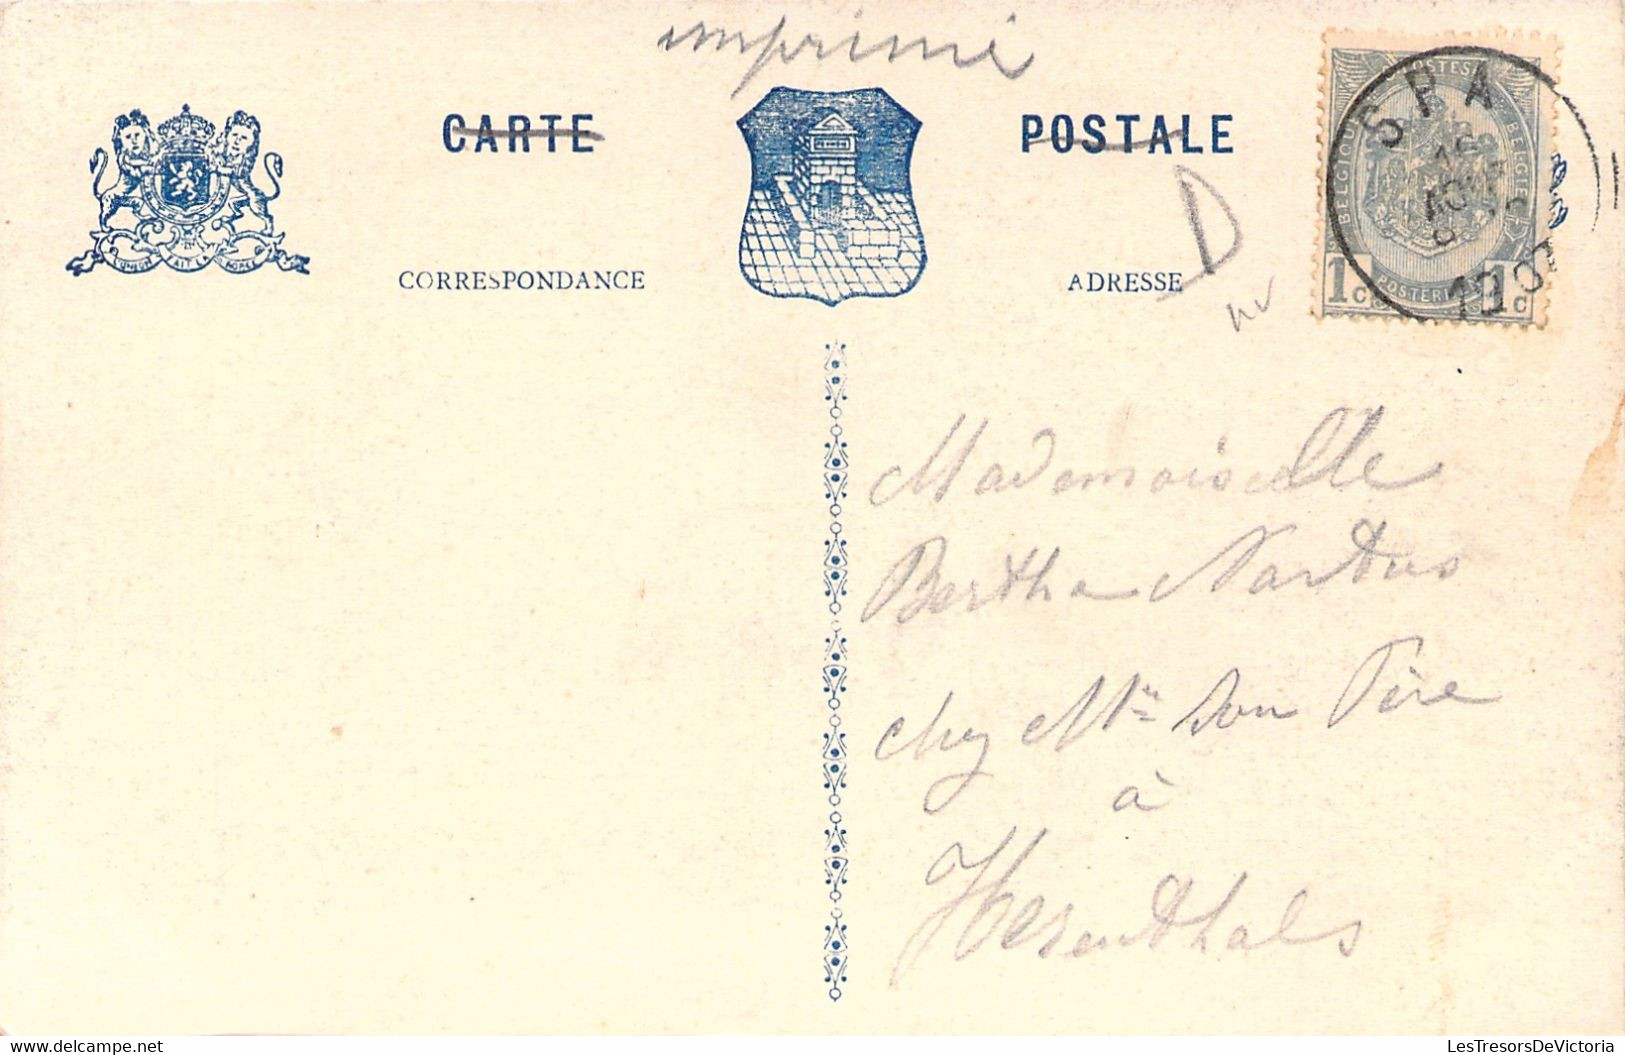 imprimé
CARTE POSTALE
CORRESPONDANCE
ADRESSE
D
POSTES
BELGIQUE
BELGIË
POSTERIJEN
1c 1c
SPA
1907
L'UNION FAIT LA FORCE
Mademoiselle
Bertha Nardus
chez Mr Son Père
à
Herenthals
Delcampe.net
LesTresorsDeVictoria